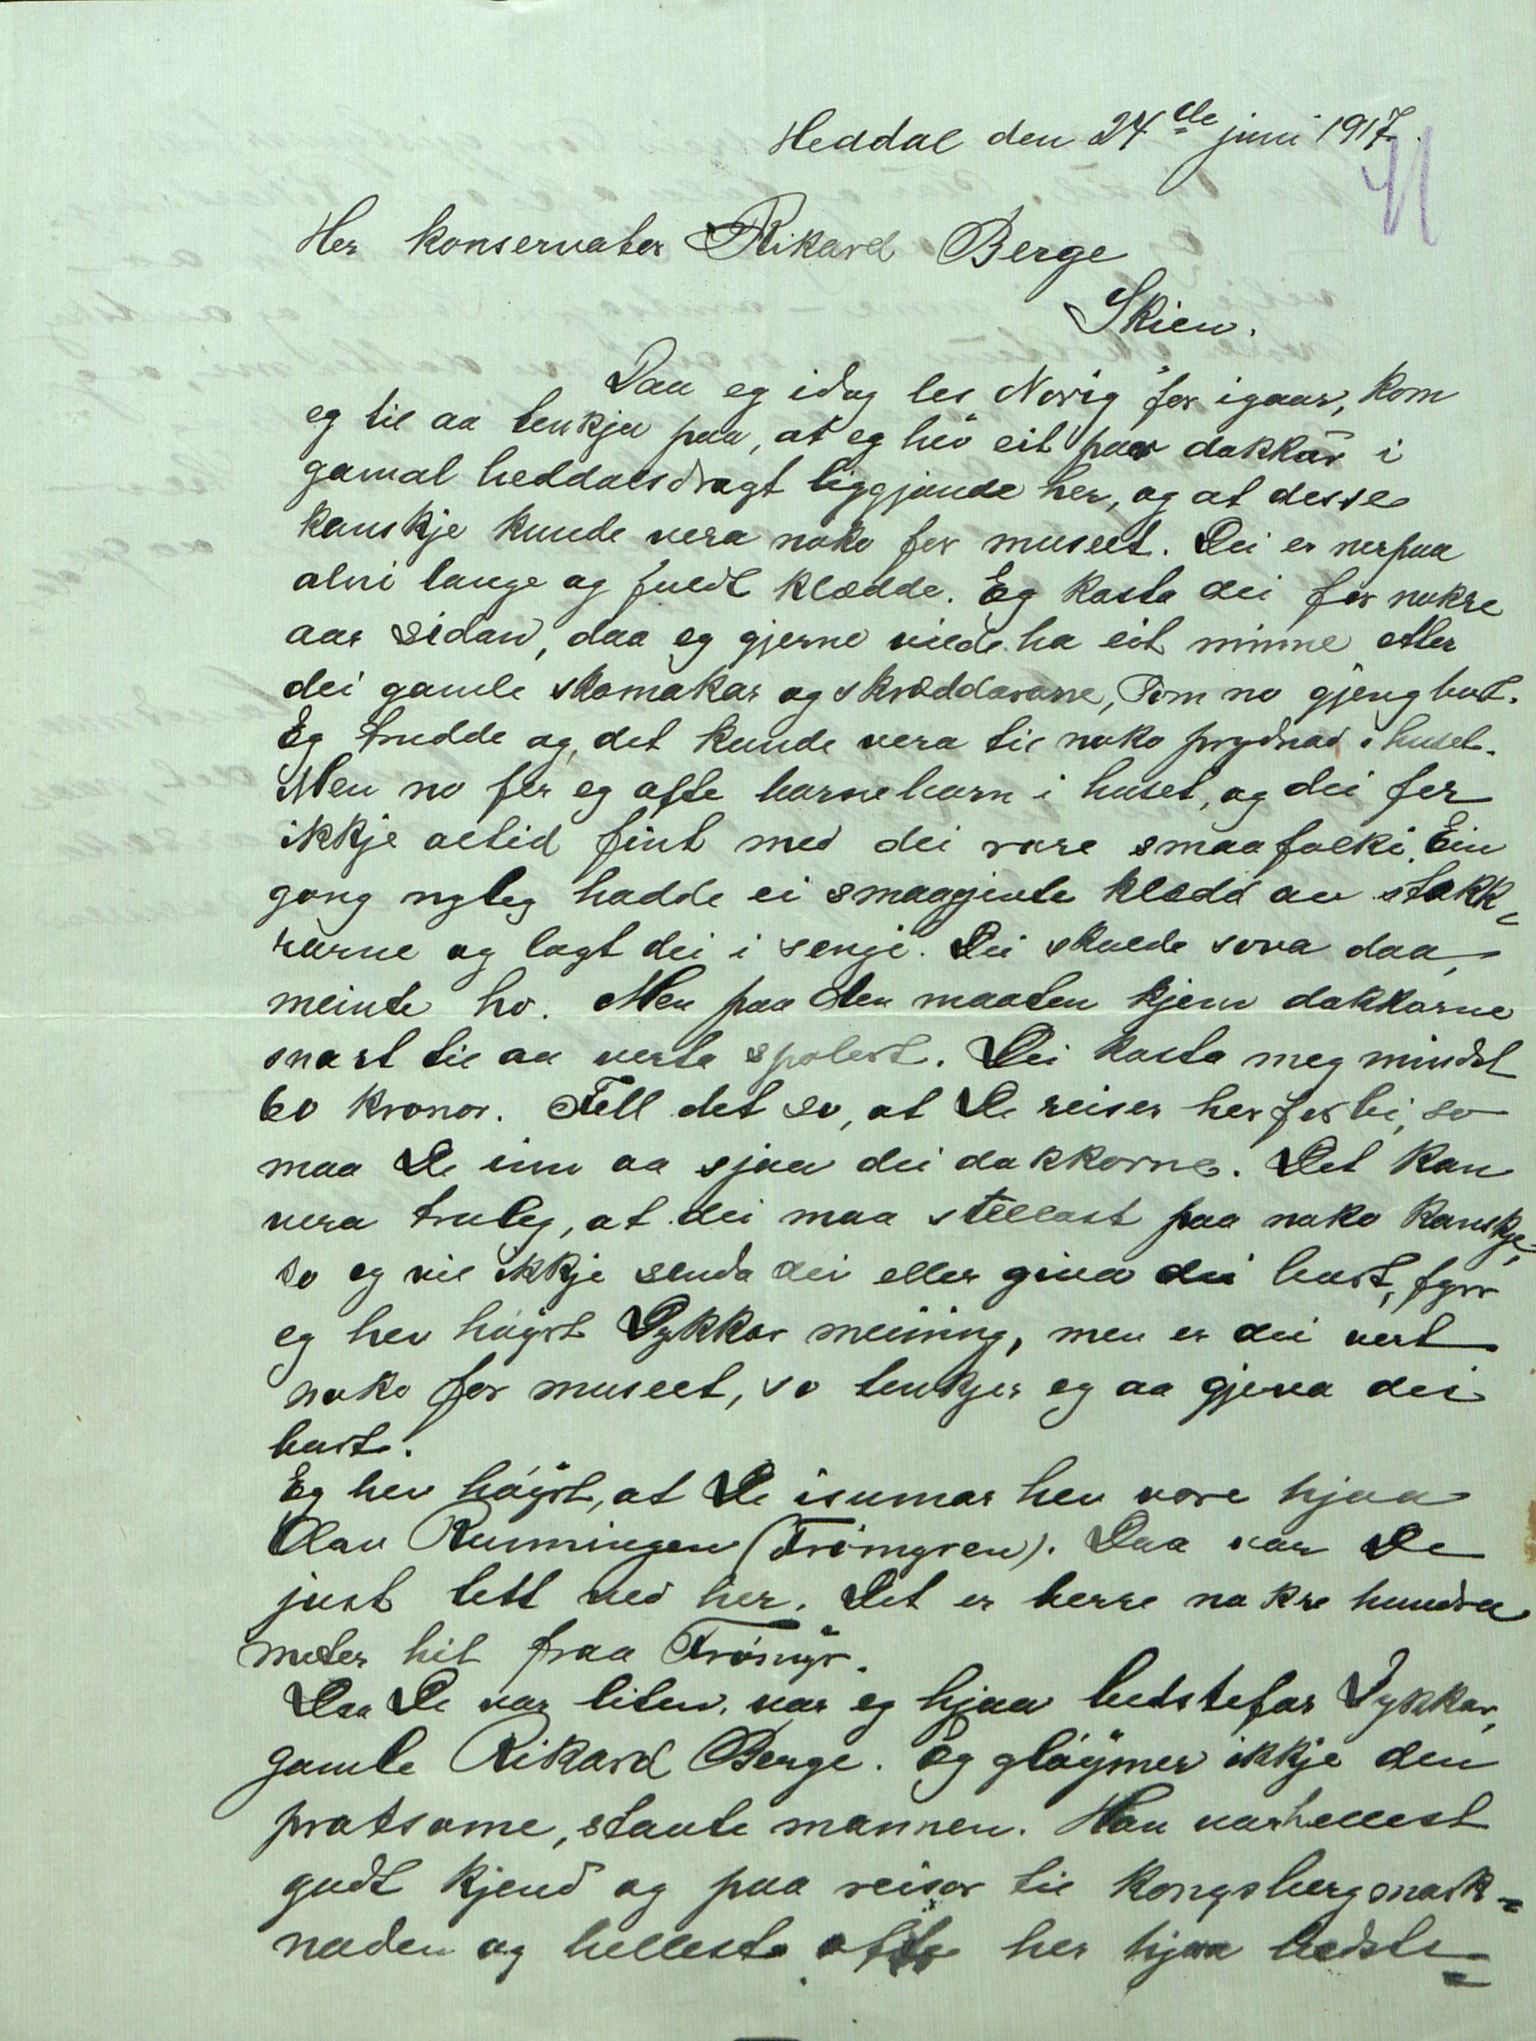 Heddal den 24de juni 1917.
Her konservator Rikard Berge
Skien.
Daa eg idag les Norig" for igaar, kom
eg til aa tenkja paa, at eg hev eit paar dokkar i
gamal heddalsdragt liggjande her, og at desse
kanskje kunde vera noko for museet. Dei er nerpaa
alni lange og fuldt klædde. Eg kosta dei for nokre
aar sidan, daa eg gjerne vilde ha eit minne etter
dei gamle skomakar og skræddarane, som no gjeng bort.
Eg trudde og, det kunde vera til noko prydnad i huset.
Men no fær eg ofte barneborn i huset, og dei fer
ikkje altid fint med dei rare smaafolki. Ein
gong nyleg hadde ei smaagjente klædd av stakk-
rarne og lagt dei i sengi. Dei skulde sova daa,
meinte ho. Men paa den maaten kjem dokkarne
snart til aa verta spolert. Dei kosta meg mindst
60 kronor. Fell det so, at De reiser her forbi, so
maa De inn aa sjaa dei dokkorne. Det kan
vera truleg, at dei maa stellast paa noko kanskje,
so eg vil ikkje senda dei eller giva dei bort, fyrr
eg hev høyrt Dykkar meining, men er dei vert
noko for museet, so tenkjer eg aa gjeva dei
bort.
Eg hev høyrt, at De isumar hev vore hjaa
Olav Runningen (Trømyren). Daa var De
just tett ved her. Det er berre nokre hundra
meter hit fraa Trømyr.
Daa De var liten, var eg hjaa bedstefar Dykkar,
gamle Rikard Berge. Eg gløymer ikkje den
pratsame, staute mannen. Han var hellest
godt kjend og paa reisor til Kongsbergmark-
naden og hellest ofte her hjaa bedste-